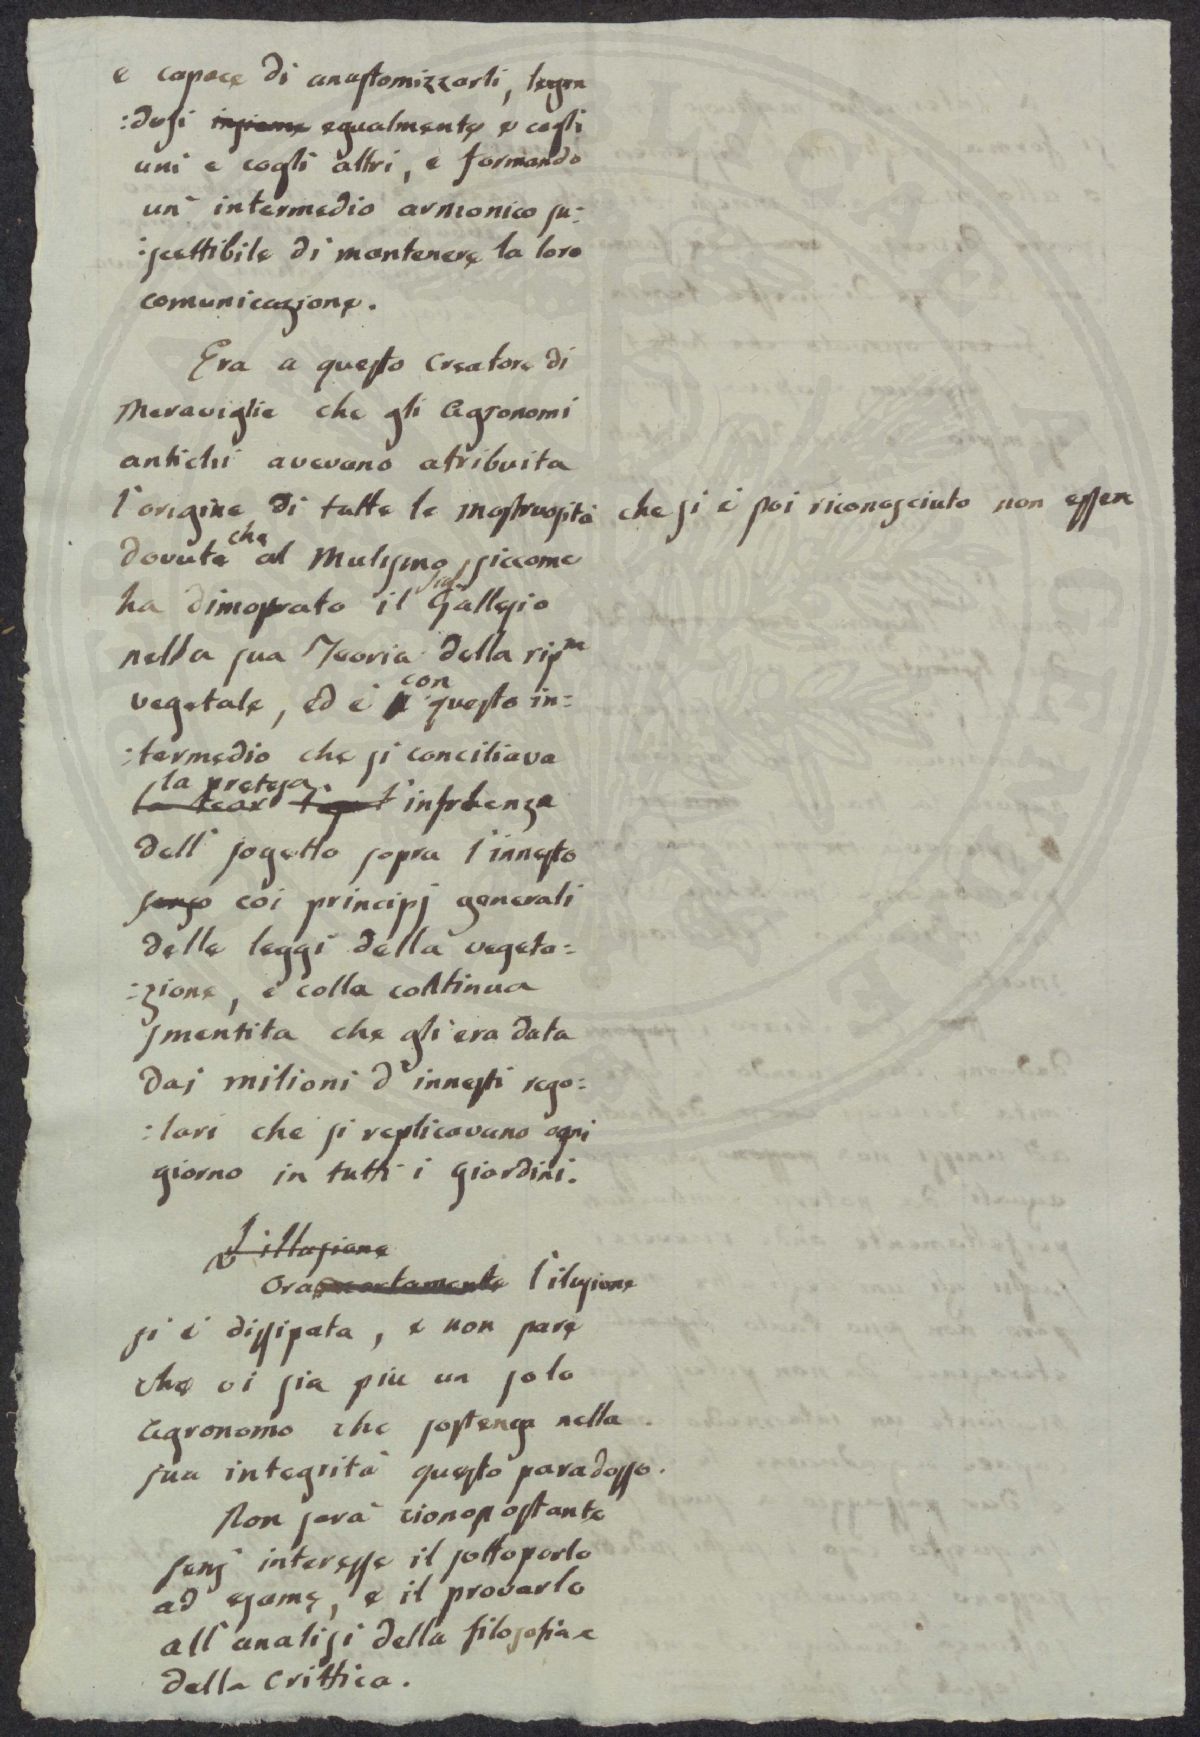 e capace di anastomizzarli, legan
:dosi insieme egualmente e cogli
uni e cogli altri, e formando
un' intermedio armonico su:
:scettibile di mantenere la loro
comunicazione.
Era a questo Creatore di
Meraviglie che gli Agronomi
antichi avevano atribuita
l'origine di tutte le mostruosità che si è poi riconosciuto non essere
dovute che al Mulismo, siccome
ha dimostrato il Sig. Gallesio
nella sua Teoria della ripne
vegetale, ed è con questo in:
:termedio che si conciliava
la pretesa l'infruenza
dell' sogetto sopra l'innesto
senso coi principj generali
delle leggi della vegeta:
:zione, e colla continua
smentita che gli era data
dai milioni d'innesti rego:
:lari che si replicavano ogni
giorno in tutti i Giardini.
L'illusione
Ora certamente l'ilusione
si è dissipata, e non pare
che vi sia più un solo
Agronomo che sostenga nella
sua integrità questo paradosso.
Non sarà cionopostante
sens' interesse il sottoporlo
ad esame, e il provarlo
all'analisi della filosofia e
della Crittica.